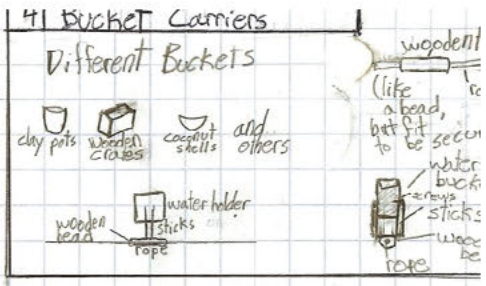 4| Bucket Carriers
Different Buckets
clay pots
wooden crates
coconut shells
and others
water holder
sticks
wooden bead
rope
wooden
(like
a bead,
but fit
to be secur
water
bucke
screws
sticks
wood
be
rope